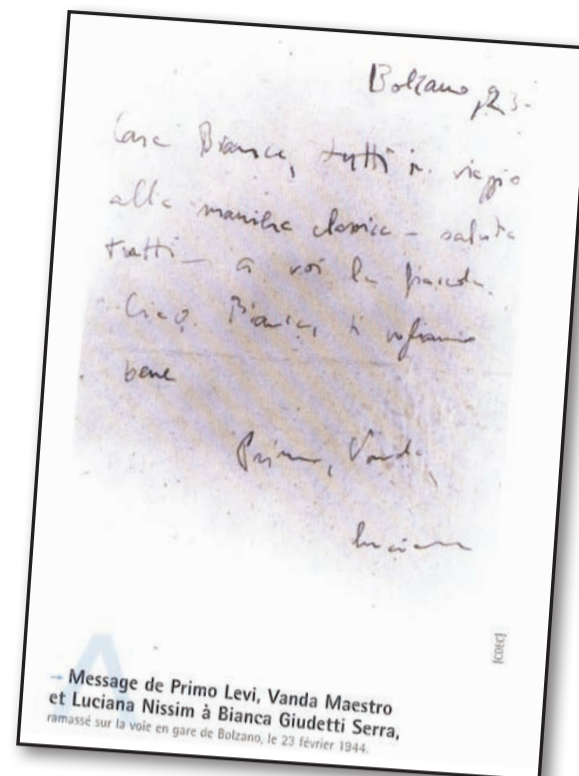 Bolzano, 23-
Cara Bianca, tutti in viaggio
alla maniera classica – saluta
tutti – a voi la fiaccola.
Ciao, Bianca, ti vogliamo
bene
Primo, Vanda,
Luciana
[CDEC]
A
→ Message de Primo Levi, Vanda Maestro
et Luciana Nissim à Bianca Giudetti Serra,
ramassé sur la voie en gare de Bolzano, le 23 février 1944.